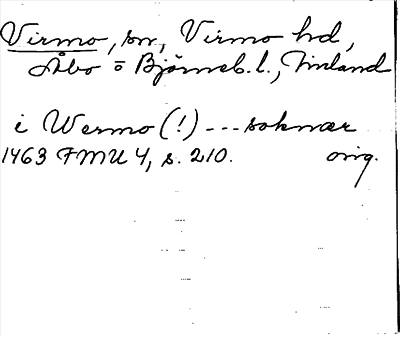 Virmo, sn, Virmo hd,
Åbo o Björneb. l., Finland
i Wermo (!) --- soknær
1463 FMU 4, s. 210. orig.